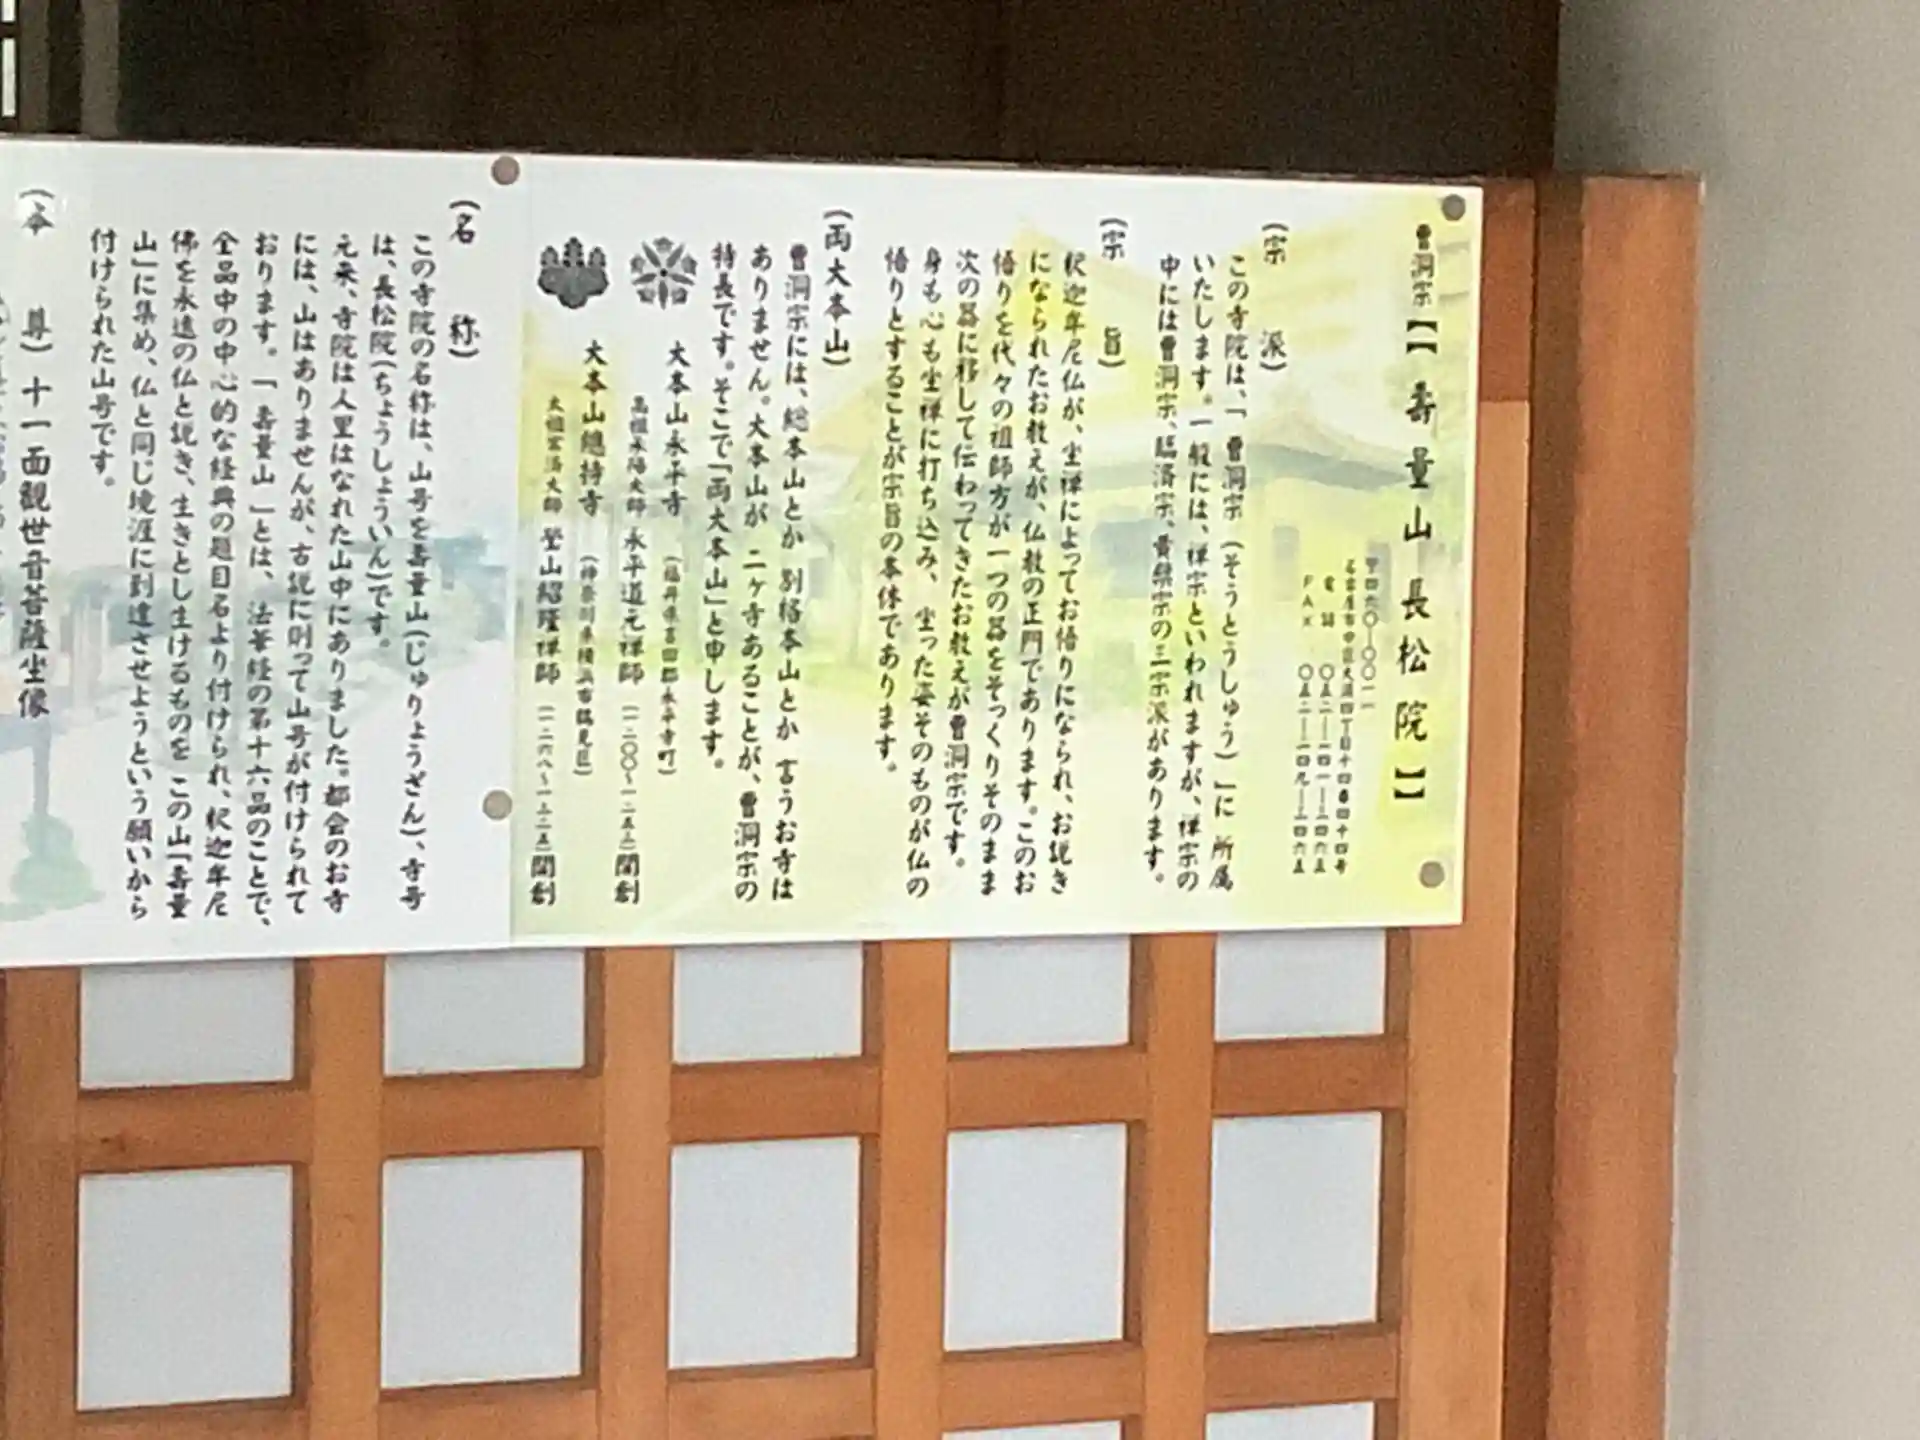 曹洞宗【【 壽量山 長松院 】】
〒四六〇―〇〇一一
名古屋市中区大須四丁目十四番四十四号
電話 〇五二―二四一―三四六五
FAX 〇五二―二四九―三四六五
(宗 派)
この寺院は、「 曹洞宗 (そうとうしゅう) 」に 所属
いたします。一般には、禅宗といわれますが、禅宗の
中には曹洞宗、臨済宗、黄檗宗の三宗派があります。
(宗 旨)
釈迦牟尼仏が、坐禅によってお悟りになられ、お説き
になられたお教えが、仏教の正門であります。このお
悟りを代々の祖師方が一つの器をそっくりそのまま
次の器に移して伝わってきたお教えが曹洞宗です。
身も心も坐禅に打ち込み、坐った姿そのものが仏の
悟りとすることが宗旨の本体であります。
(両大本山)
曹洞宗には、総本山とか 別格本山とか 言うお寺は
ありません。大本山が 二ヶ寺あることが、曹洞宗の
特長です。そこで「両大本山」と申します。
大本山永平寺 (福井県吉田郡永平寺町)
高祖承陽大師 永平道元禅師 (一二〇〇~一二五三)開創
大本山總持寺 (神奈川県横浜市鶴見区)
太祖常済大師 瑩山紹瑾禅師 (一二六八~一三二五)開創
(名 称)
この寺院の名称は、山号を壽量山(じゅりょうざん)、寺号
は、長松院(ちょうしょういん)です。
元来、寺院は人里はなれた山中にありました。都会のお寺
には、山はありませんが、古説に則って山号が付けられて
おります。「 壽量山 」とは、法華経の第十六品のことで、
全品中の中心的な経典の題目名より付けられ、釈迦牟尼
佛を永遠の仏と説き、生きとし生けるものを この山「壽量
山」に集め、仏と同じ境涯に到達させようという願いから
付けられた山号です。
(本 尊) 十一面観世音菩薩坐像